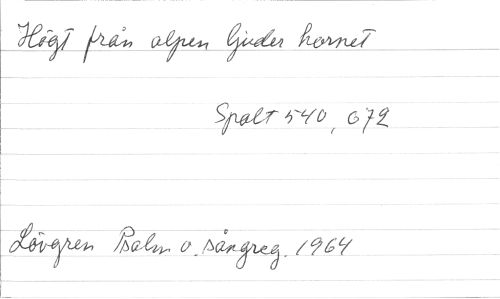 Högt från alpen ljuder hornet
Spalt 540, 672
Lövgren Psalm o. sångreg. 1964